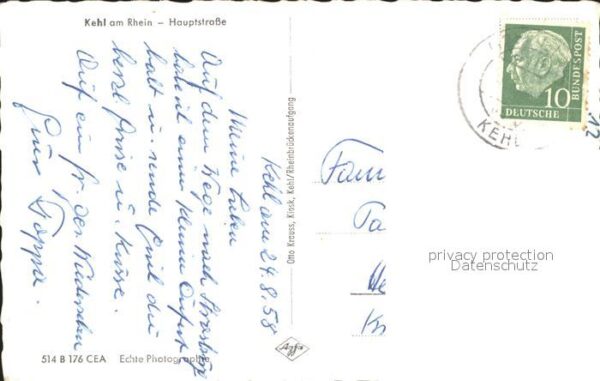 Kehl am Rhein – Hauptstraße
Kehl am 24.8.58
Meine Lieben
Auf dem Wege nach Strassbg
hatte ich einen kleinen Aufent-
halt u. sende Euch die
besten Grüsse u. Küsse.
Auf ein fr. des Wiedersehen
Euer Pappa.
514 B 176 CEA Echte Photographie
Otto Krauss, Kiosk, Kehl/Rheinbrückenaufgang
Agfa
Fam
He
10
DEUTSCHE
BUNDESPOST
KEHL
12
privacy protection
Datenschutz